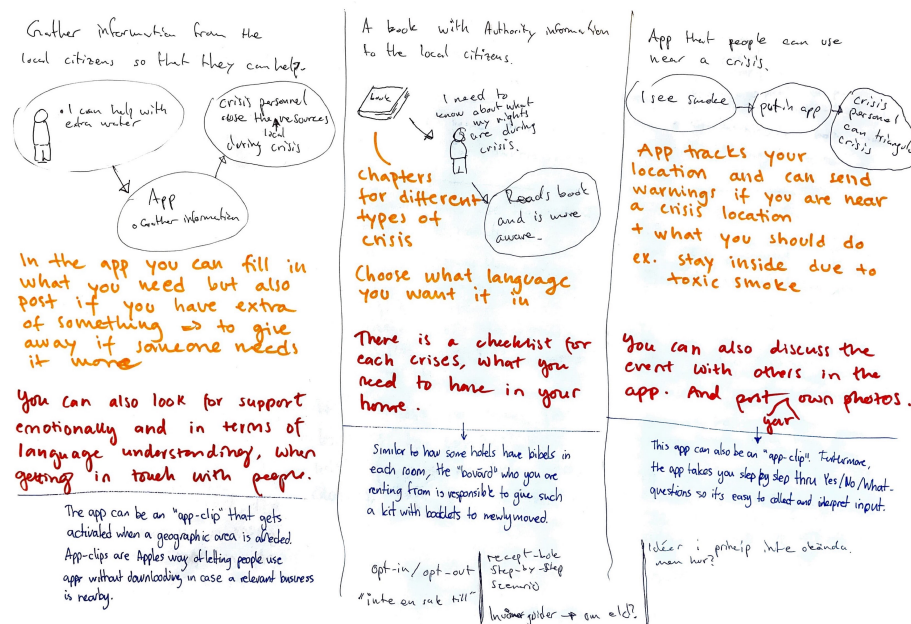 Gather information from the
local citizens so that they can help.
• I can help with
extra water
Crisis personel
case the resources
local
during crisis
App
• Gather information
In the app you can fill in
what you need but also
post if you have extra
of something => to give
away if someone needs
it more
You can also look for support
emotionally and in terms of
language understanding, when
getting in touch with people.
The app can be an "app-clip" that gets
activated when a geographic area is
App-clips are Apples way of letting people use
apps without downloading in case a relevant business
is nearby.
A book with Authority information
to the local citizens.
book
I need to
know about what
my rights
are during
crisis.
chapters
for different
types of
crisis
Reads book
and is more
aware.
Choose what language
you want it in
There is a checklist for
each crises, what you
need to have in your
home.
Similar to how some hotels have bibels in
each room, the "bovärd" who you are
renting from is responsible to give such
a kit with booklets to newlymoved.
opt-in/opt-out
"inte en sak till"
recept-bok
Step-by-Step
Scenario
guider → om eld?
App that people can use
near a crisis.
I see smoke
put in app
Crisis
personal
can triangul
crisis
App tracks your
location and can send
warnings if you are near
a crisis location
+ what you should do
ex. stay inside due to
toxic smoke
You can also discuss the
event with others in the
app. And post own photos.
your
This app can also be an "app-clip". Furthermore,
the app takes you step by step thru Yes/No/What-
questions so its easy to collect and interpret input.
Idéer i princip inte okända.
men hur?